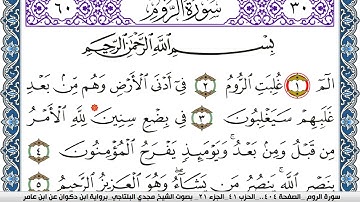 ٦٠ سُورَةُ الرُّومِ ٣٠
بِسْمِ اللَّهِ الرَّحْمَٰنِ الرَّحِيمِ
الٓمٓ ١ غُلِبَتِ الرُّومُ ٢ فِي أَدْنَى الْأَرْضِ وَهُم مِّنۢ بَعْدِ
غَلَبِهِمْ سَيَغْلِبُونَ ٣ فِي بِضْعِ سِنِينَ لِلَّهِ الْأَمْرُ
مِن قَبْلُ وَمِنۢ بَعْدُ وَيَوْمَئِذٍ يَفْرَحُ الْمُؤْمِنُونَ ٤
بِنَصْرِ اللَّهِ يَنصُرُ مَن يَشَاءُ وَهُوَ الْعَزِيزُ الرَّحِيمُ ٥
سورة الروم .. الصفحة ٤٠٤.. الحزب ٤١ الجزء ٢١ .. بصوت الشيخ مجدي البلتاجي. برواية ابن ذكوان عن ابن عامر